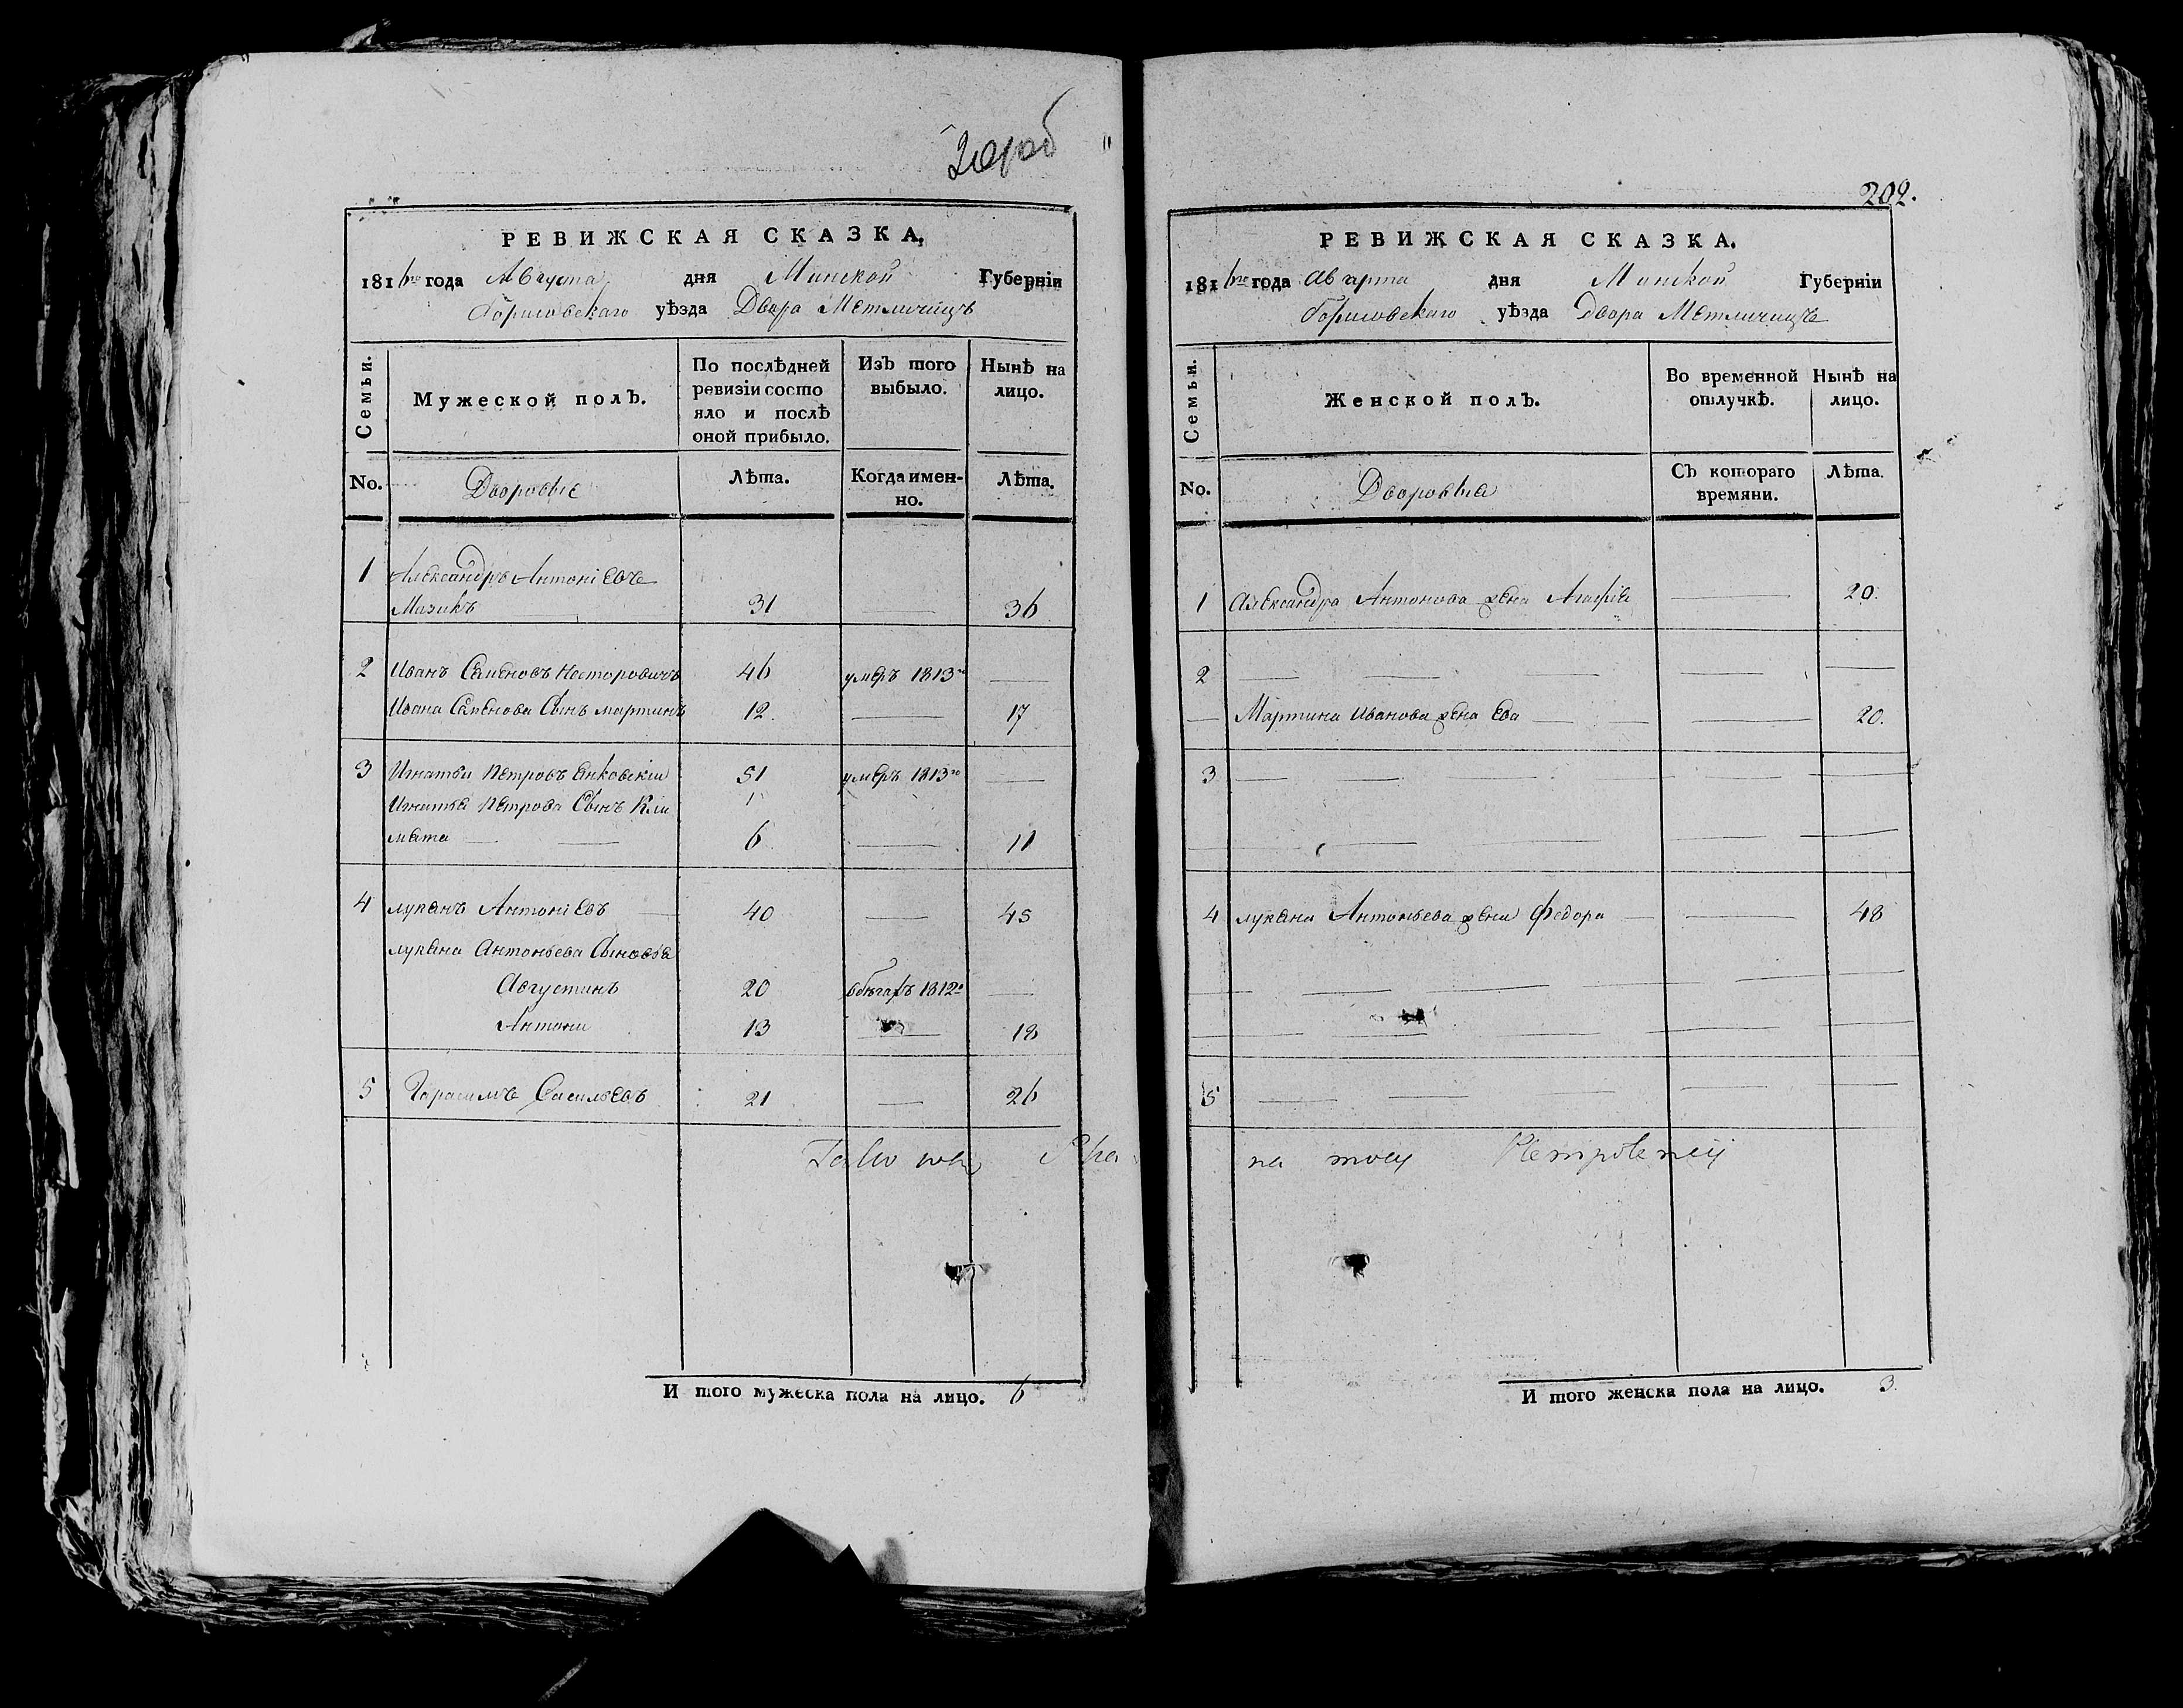 РЕВИЖСКАЯ СКАЗКА,
1816го года Августа дня Минской Губерніи
Борисовскаго уѣзда Двора Метличицъ
Семьи.
Мужеской полъ.
По послѣдней
ревизіи состо
яло и послѣ
оной прибыло.
Изъ того
выбыло.
Нынѣ на
лицо.
No.
Дворовые
Лѣта.
Когда имен-
но.
Лѣта.
1 Александръ Антоніевъ
Мазикъ 31 36
2 Иванъ Семеновъ Несторовичъ 46 умеръ 1813го
Ивана Семенова Сынъ мартинъ 12. 17
3 Игнатьи Петровъ Енковскіи 51 умеръ 1813го
Игнатья Петрова Сынъ Кли
мята 6 11
4 лукянъ Антоніевъ 40 45
лукяна Антоньева Сыновья
Августинъ 20 1812
Антони 13 18
5 Герасимъ Васильевъ 21 26
И того мужеска пола на лицо. 6
202.
РЕВИЖСКАЯ СКАЗКА.
1816го года Августа дня Минской Губерніи
Борисовскаго уѣзда Двора Метличицъ
Семьи.
Женской полъ.
Во временной
отлучкѣ.
Нынѣ на
лицо.
No.
Дворовыя
Съ котораго
времяни.
Лѣта.
1 Александра Антонова жена Агафія 20.
2
Мартина Иванова жена Ева 20.
3
4 лукяна Антоньева жена Федора 48
5
на
И того женска пола на лицо. 3.